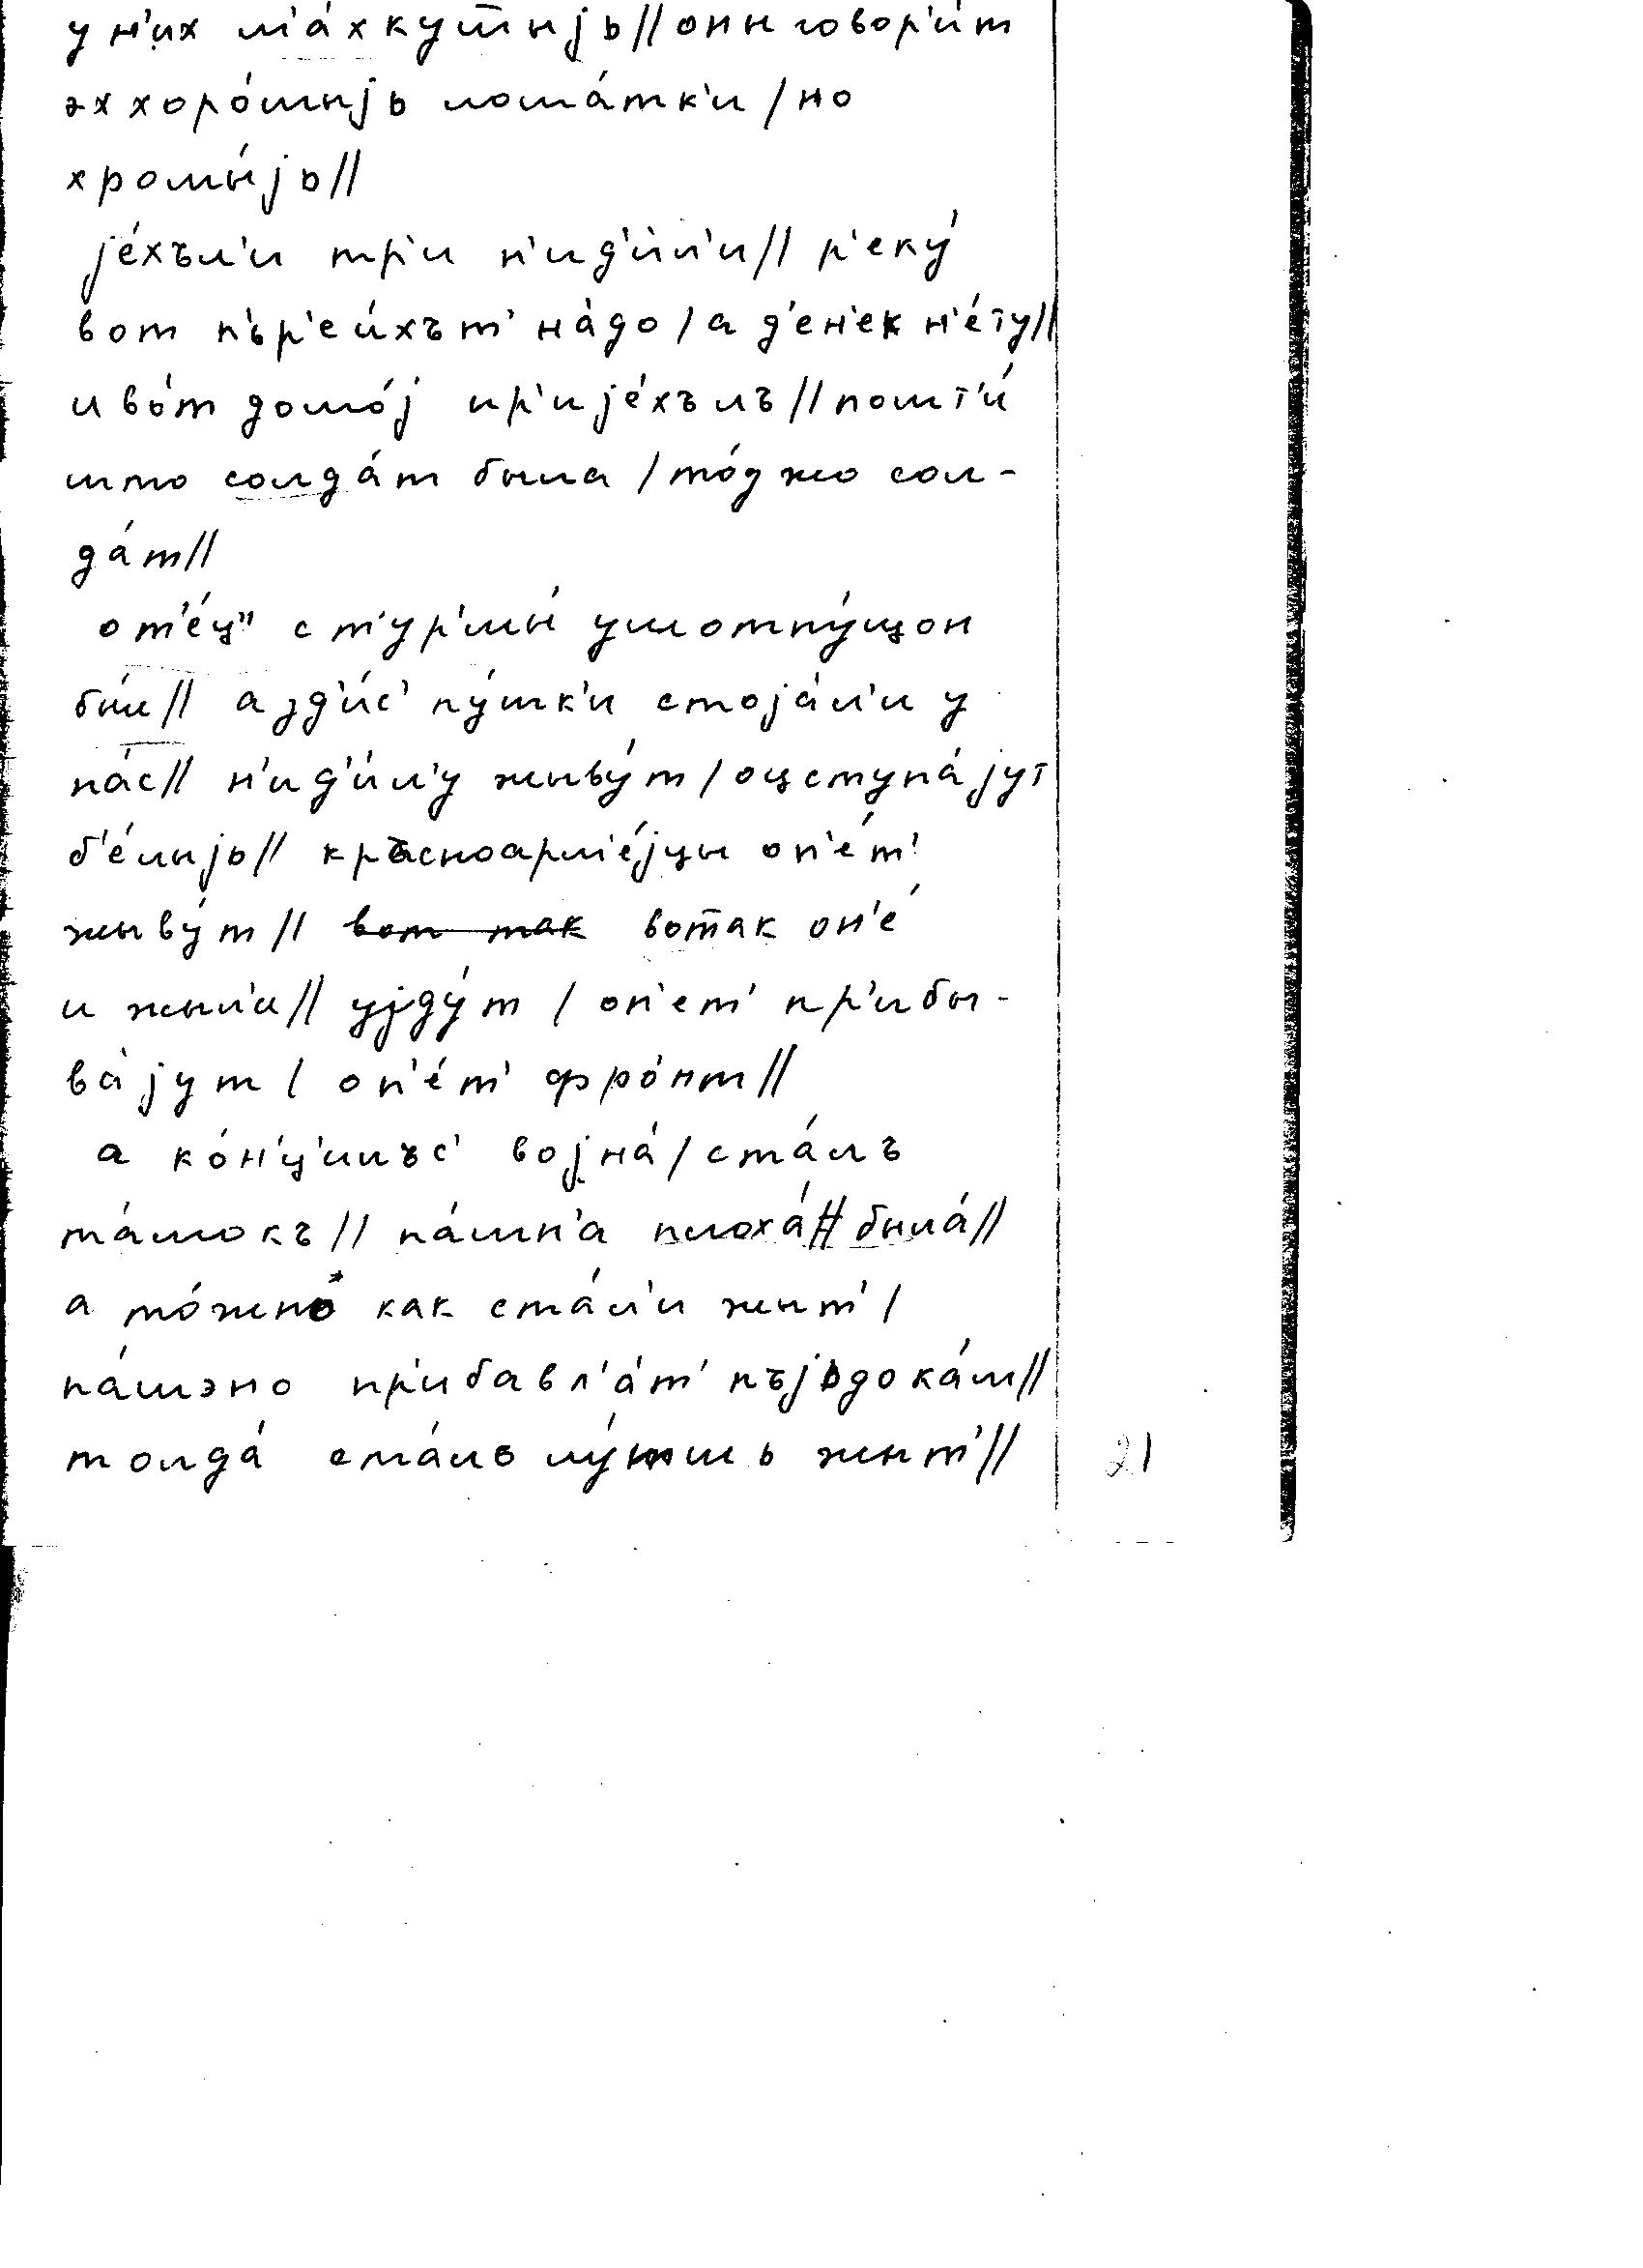 у н'их м'а́хкутыjь//оны говор'и́т
эх хоро́шыjь лоша́тк'и/но
хромы́jь//
jе́хъл'и тр'и н'ид'и́л'и// р'еку́
вот п'ьр'еи́хът' на́до/а д'ен'ек н'е́ту//
и во́т домо́j пр'иjе́хълъ//пошт'и́
што солда́т была/то́джо сол-
да́т//
от'е́ц" с т'ур'мы́ ушотпу́щон
бы́л// а зд'и́с' пу́шк'и стоjа́л'и у
на́с// н'ид'и́л'у жыву́т/оцступа́jут
б'е́лыjь// кръсноарм'е́jцы оп'е́т'
жыву́т// вот так вотак он'е́
и жыл'и// уjду́т / оп'ет' пр'ибы-
ва́jут/ оп'е́т' фро́нт//
а ко́н'ц'илъс' воjна́/ста́лъ
та́шокъ// па́шн'а плоха́// была́//
а то́жно́ как ста́л'и жыт'/
па́шэно пр'ибавл'а́т' пъjьдока́м//
толда́ ста́лъ лу́тшь жыт'//
21